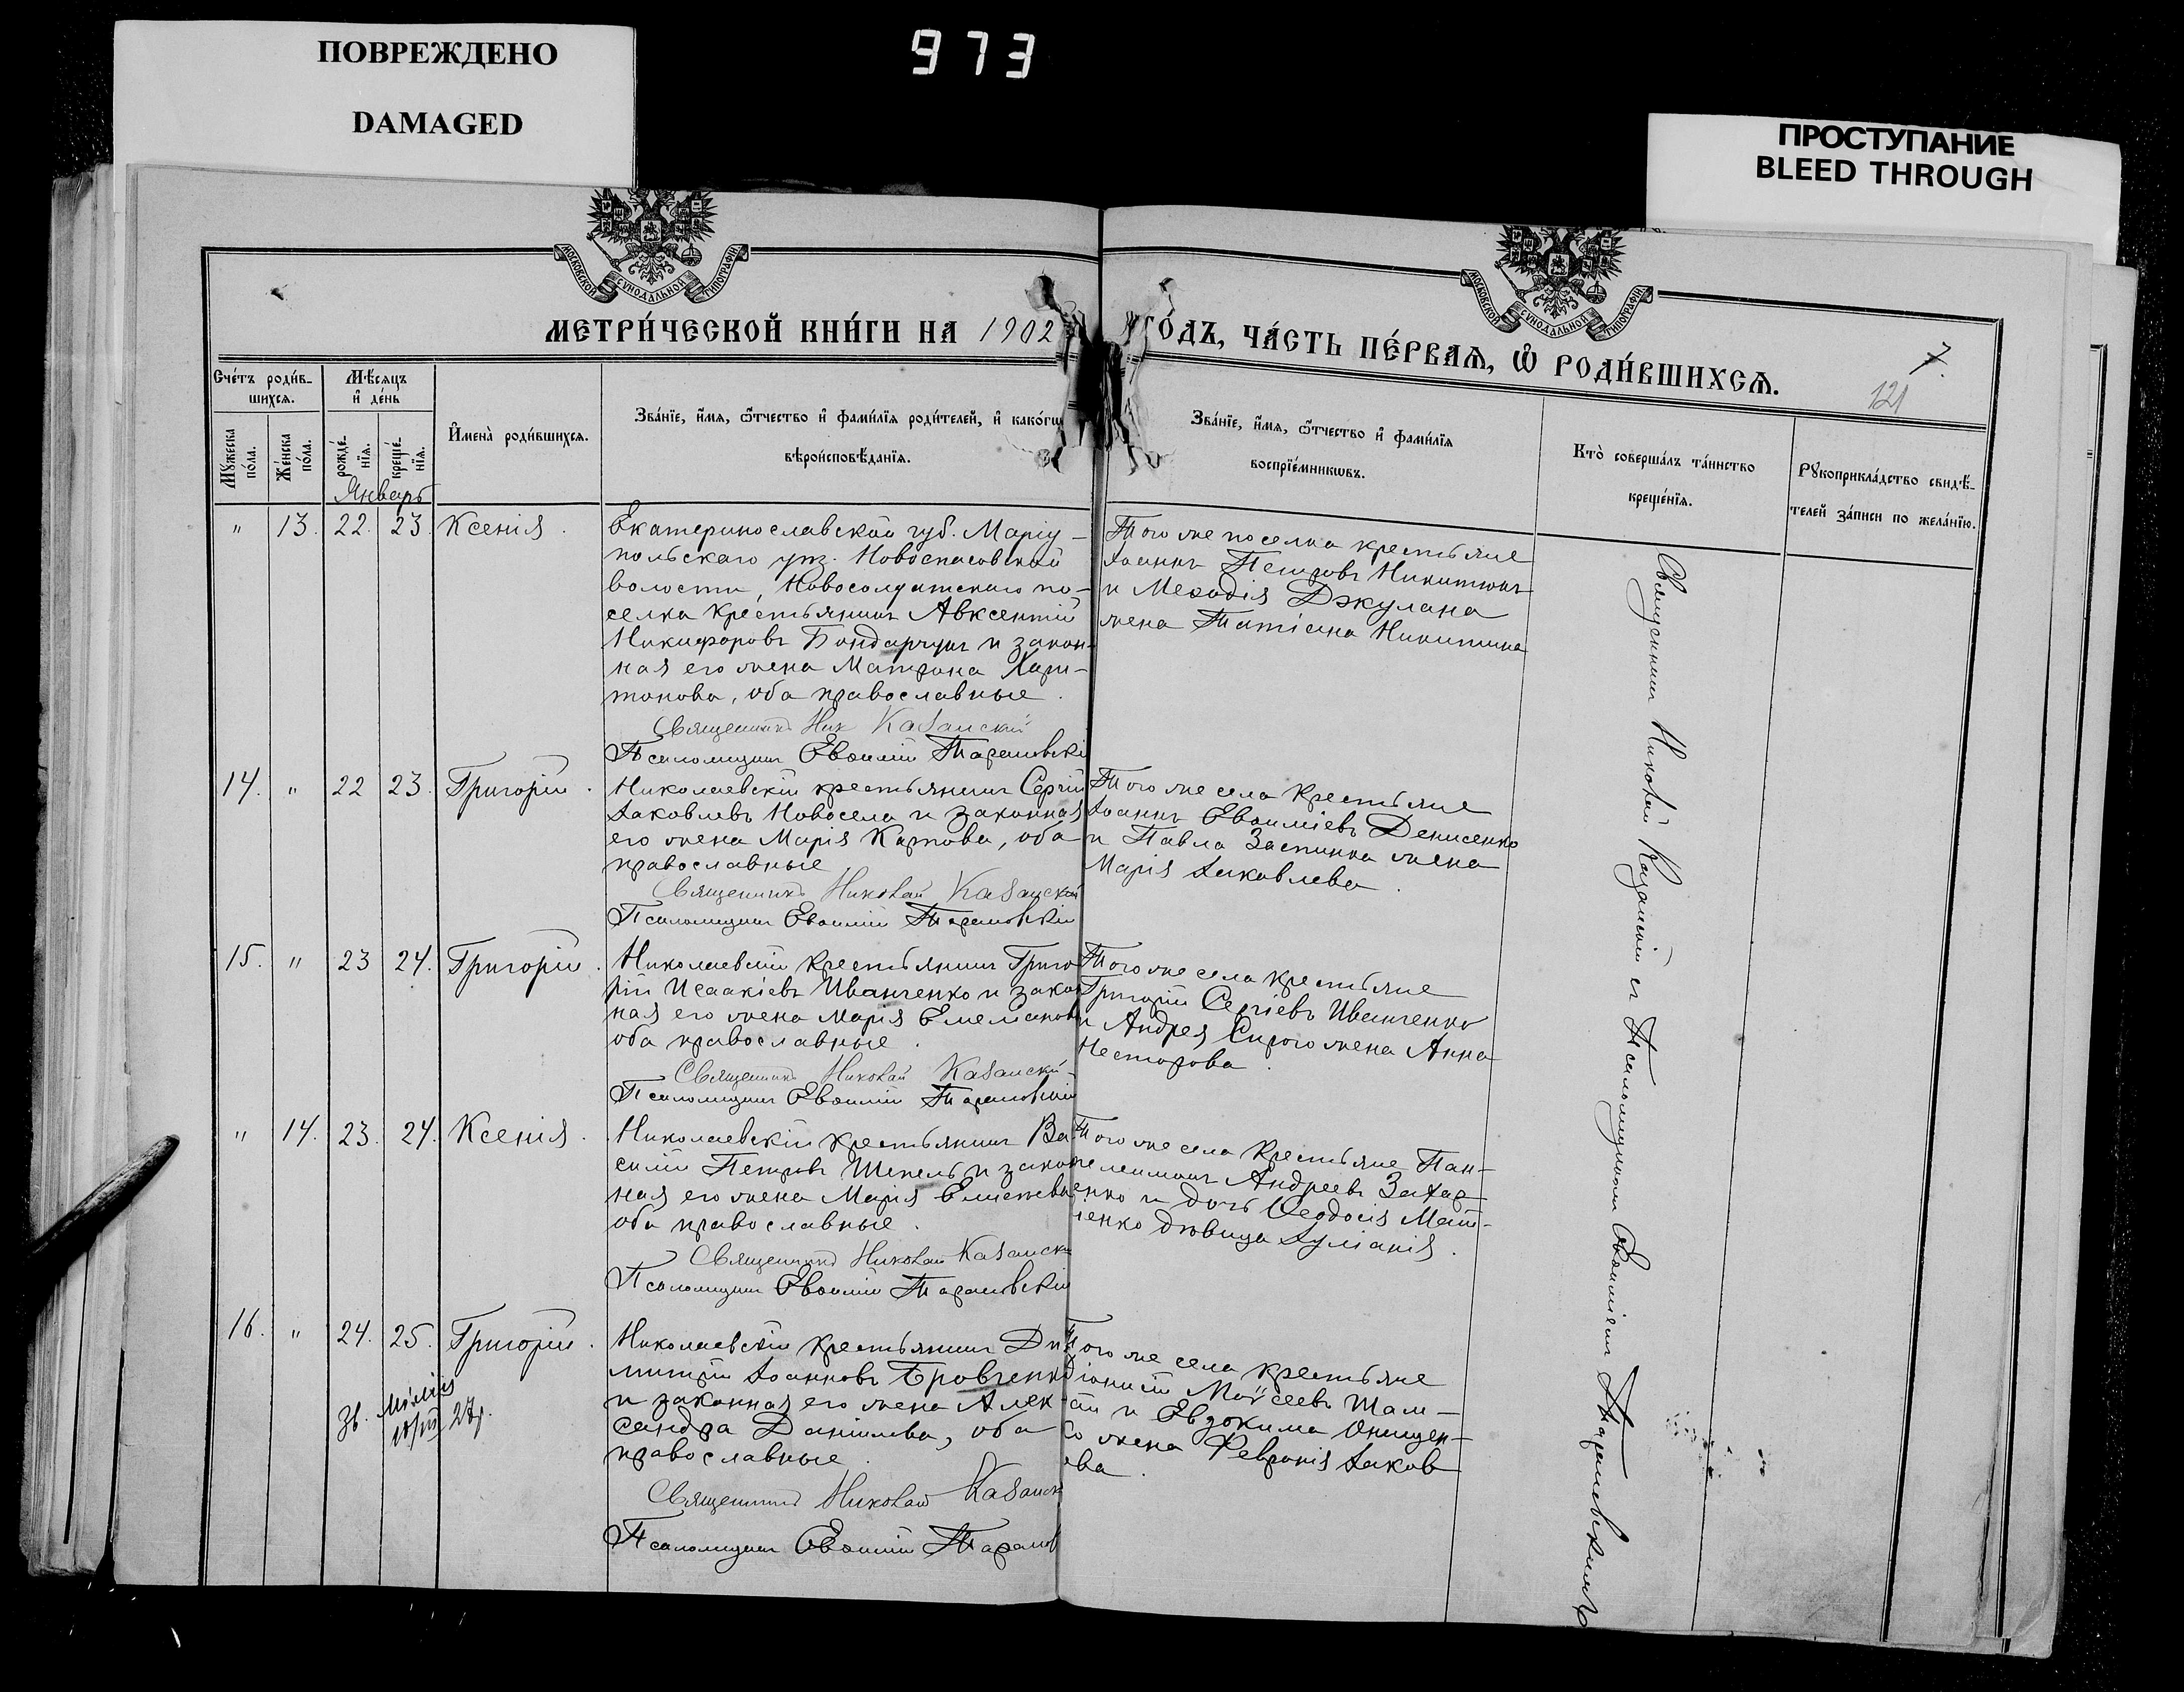 ПОВРЕЖДЕНО
DAMAGED
973
ПРОСТУПАНИЕ
BLEED THROUGH
МОСКОВСКОЙ СѴНОДАЛЬНОЙ ТИПОГРАФІИ
МОСКОВСКОЙ СѴНОДАЛЬНОЙ ТИПОГРАФІИ
МЕТРИ́ЧЕСКОЙ КНИ́ГИ НА 1902
ГО́ДЪ, ЧА́СТЬ ПЕ́РВАѦ, Ѽ РОДИ́ВШИХСѦ.
7.
121
Сче́тъ роди́в-
шихсѧ.
Мꙋ́жеска
по́ла.
Же́нска
по́ла.
Мѣ́сѧцъ
и҆ де́нь
рожде́-
нїѧ.
креще́-
нїѧ.
Январь
И҆мена̀ роди́вшихсѧ.
Зва́нїе, и҆́мѧ, ѻ҆́тчество и҆ фами́лїѧ роди́телей, и҆ како́гѡ
вѣроисповѣ́данїѧ.
Зва́нїе, и҆́мѧ, ѻ҆́тчество и҆ фами́лїѧ
воспрїе́мникѡвъ.
Кто̀ соверша́лъ та́инство
креще́нїѧ.
Рꙋкоприкла́дство свидѣ́-
телей за́писи по жела́нїю.
" 13. 22. 23. Ксенія.
Екатеринославской губ. Маріу-
польскаго уѣз. Новоспасовской
волости, Новосолдатскаго по-
селка крестьянинъ Авксентій
Никифоровъ Бондарчукъ и закон-
ная его жена Матрона Хари-
тонова, оба православные.
Священникъ Ник Казанскій
Псаломщикъ Евѳимій Тарановскі
Того же поселка крестьяне
Іоаннъ Петровъ Никитюкъ
и Меѳодія Джулана
жена Татіана Никитина
14. " 22 23. Григорій.
Николаевскій крестьянинъ Сергій
Іаковлевъ Новосела и законная
его жена Марія Карпова, оба
православные
Священникъ Николай Казанскій
Псаломщикъ Евѳимій Тарановскій
Того же села крестьяне
Іоаннъ Евѳиміевъ Денисенко
и Павла Заспинка жена
Марія Іаковлева.
15. " 23 24. Григорій.
Николаевскій крестьянинъ Григо
рій Исаакіевъ Иванченко и закон
ная его жена Марія Емеліанов
оба православные.
Священникъ Николай Казанскій
Псаломщикъ Евѳимій Тарановскій
Того же села крестьяне
Григорій Сергіевъ Иванченко
и Андрея Сирого жена Анна
Несторова.
" 14. 23. 24. Ксенія.
Николаевскій крестьянинъ Ва
силій Петровъ Шепель и закон
ная его жена Марія
оба православные.
Священникъ Николай Казански
Псаломщикъ Евѳимій Тарановскій
Того же села крестьяне Пан-
телеимонъ Андреевъ Захар-
енко и дочь Ѳеодосія Мат-
іенко дѣвица Іуліанія.
16. " 24. 25. Григорій.
Николаевскій крестьянинъ Ди
митрій Іоанновъ Бровченко
и законная его жена Алек
сандра Даніилова, оба
православные.
Священникъ Николай Казанск
Псаломщикъ Евѳимій Таранов
Того же села крестьяне
Діонисій Моѵсеевъ Шам-
ай и Евдокима Онищен-
ко жена Февронія Іаков
ова.
27 г.
Священникъ Николай Казанскій съ Псаломщикомъ Евѳиміемъ Тарановскимъ